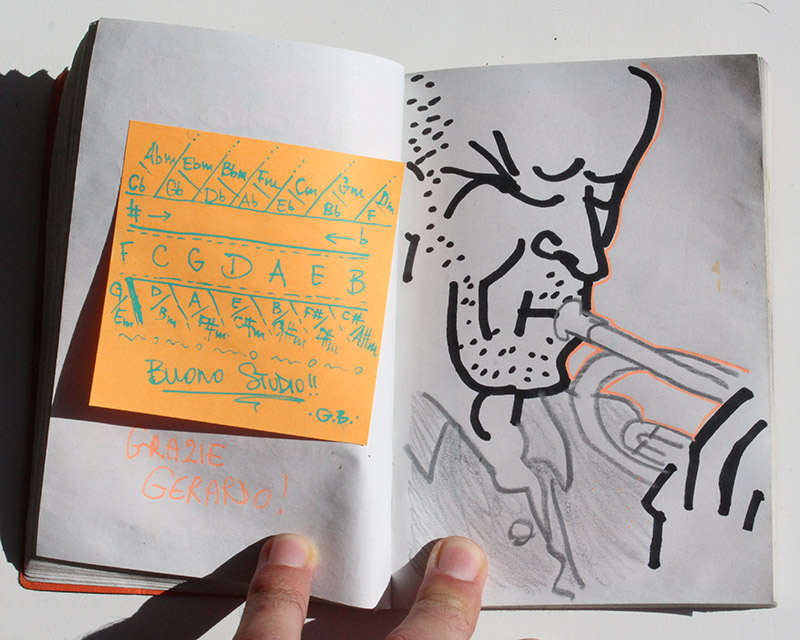 Abm Ebm Bbm Fm Cm Gm Dm
Cb Gb Db Ab Eb Bb F
# → ← b
F C G D A E B
G D A E B F# C#
Em Bm F#m C#m G#m D#m A#m
BUONO STUDIO!!
·G.B.·
GRAZIE
GERARDO!